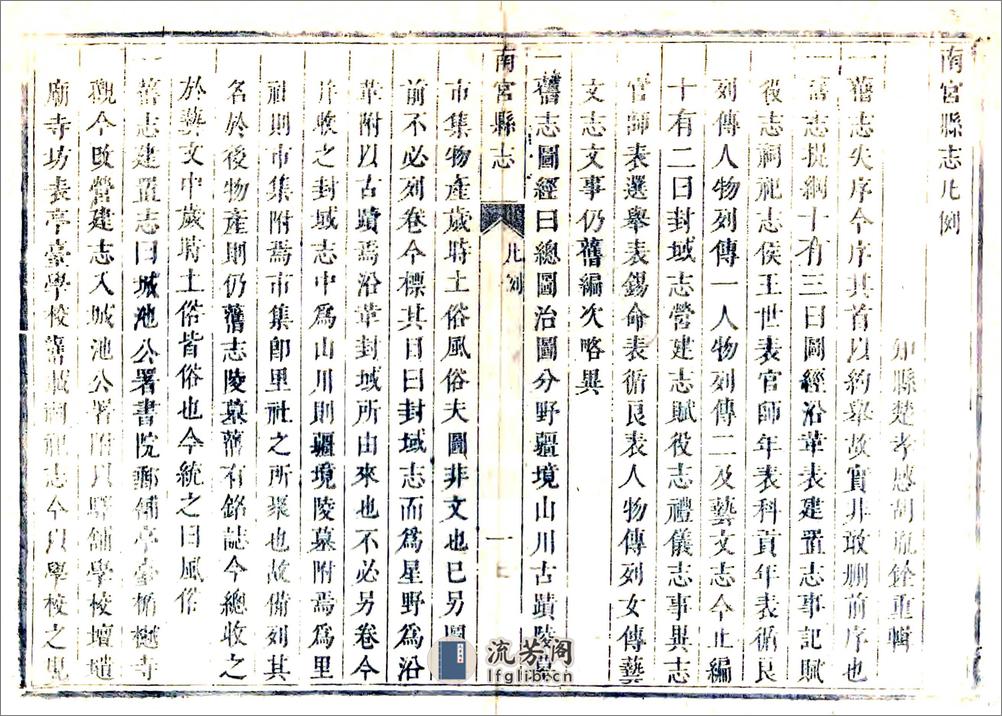 南宮縣志凡例
知縣楚孝感胡胤銓重輯
一舊志失序今序其首以約舉故實非敢刪前序也
一舊志提綱十有三曰圖經沿革表建置志事記賦
役志祠祀志侯王世表官師年表科貢年表循良
列傳人物列傳一人物列傳二及藝文志今止編
十有二曰封域志營建志賦役志禮儀志事異志
官師表選舉表錫命表循良表人物傳列女傳藝
文志文事仍舊編次略異
一舊志圖經曰總圖治圖分野疆境山川古蹟陵墓
南宮縣志
凡例
一
市集物產歲時土俗風俗夫圖非文也已另圖
前不必列卷今標其目曰封域志而為星野為沿
革附以古蹟焉沿革封域所由來也不必另卷今
并收之封域志中為山川則疆境陵墓附焉為里
社則市集附焉市集卽里社之所聚也故備列其
名於後物產則仍舊志陵墓舊有銘誌今總收之
於藝文中歲時土俗皆俗也今統之曰風俗
一舊志建置志曰城池公署書院郵鋪亭臺楯樾寺
觀今改營建志入城池公署附以驛鋪學校壇壝
廟寺坊表亭臺學校舊載祠祀志今以學校之
流芳阁
lfglib.cn